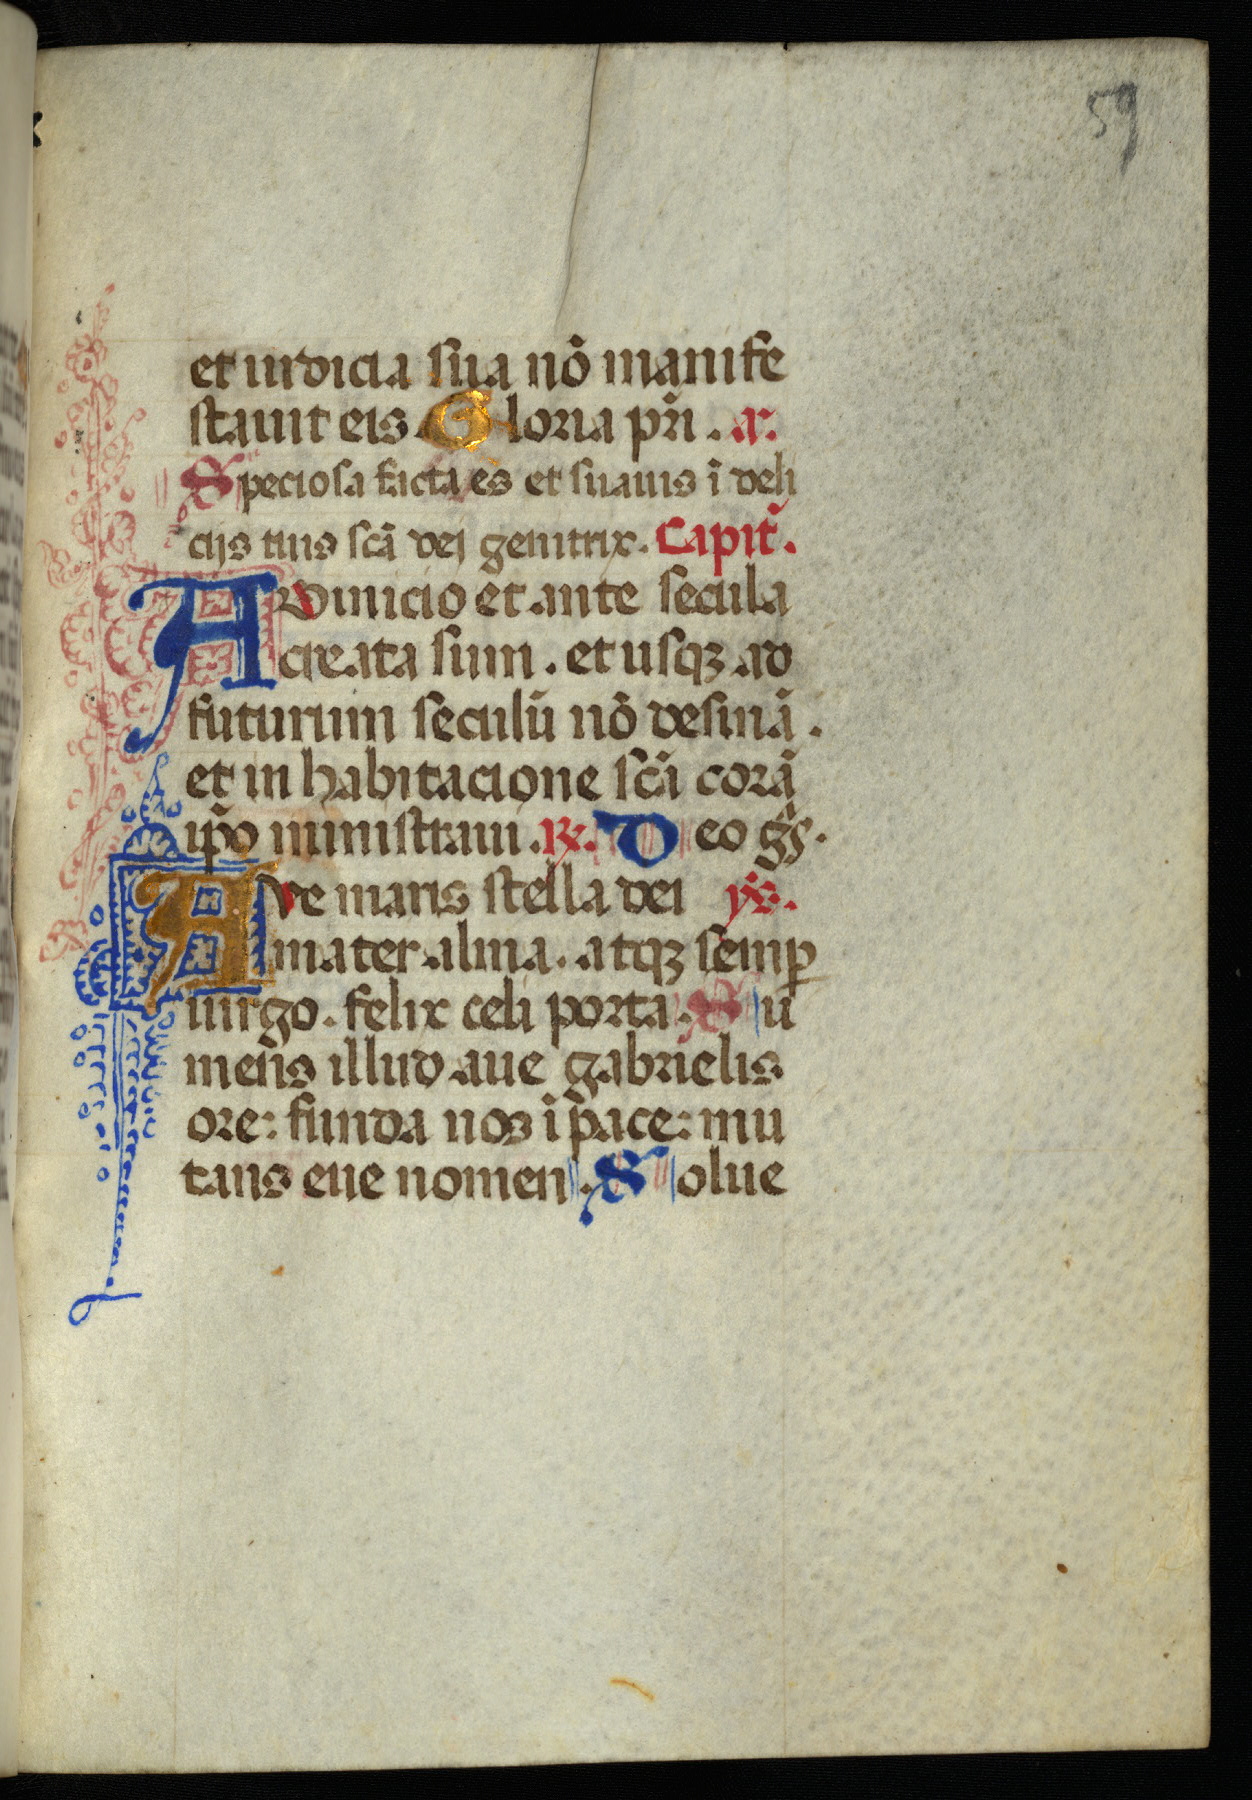 59
et iudicia sua nō manife
stauit eis. Gloria pr̄i. a.
Speciosa facta es et suauis ī deli
cijs tuis scā dei genitrix. Capit̄.
Ab inicio et ante secula
creata sum. et usqꝫ ad
futurum seculū nō desinā.
et in habitacione scā corā
ip̄o ministraui. ℟. Deo gr̄s.
Ave maris stella dei ẏs.
mater alma. atqꝫ semꝑ
uirgo. felix celi porta. Su
mens illud aue gabrielis
ore: funda nos ī pace: mu
tans eue nomen. Solue